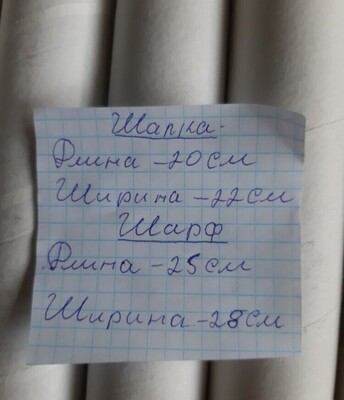 Шапка.
Длина - 20 см
Ширина - 22 см
Шарф
Длина - 25 см
Ширина - 28 см